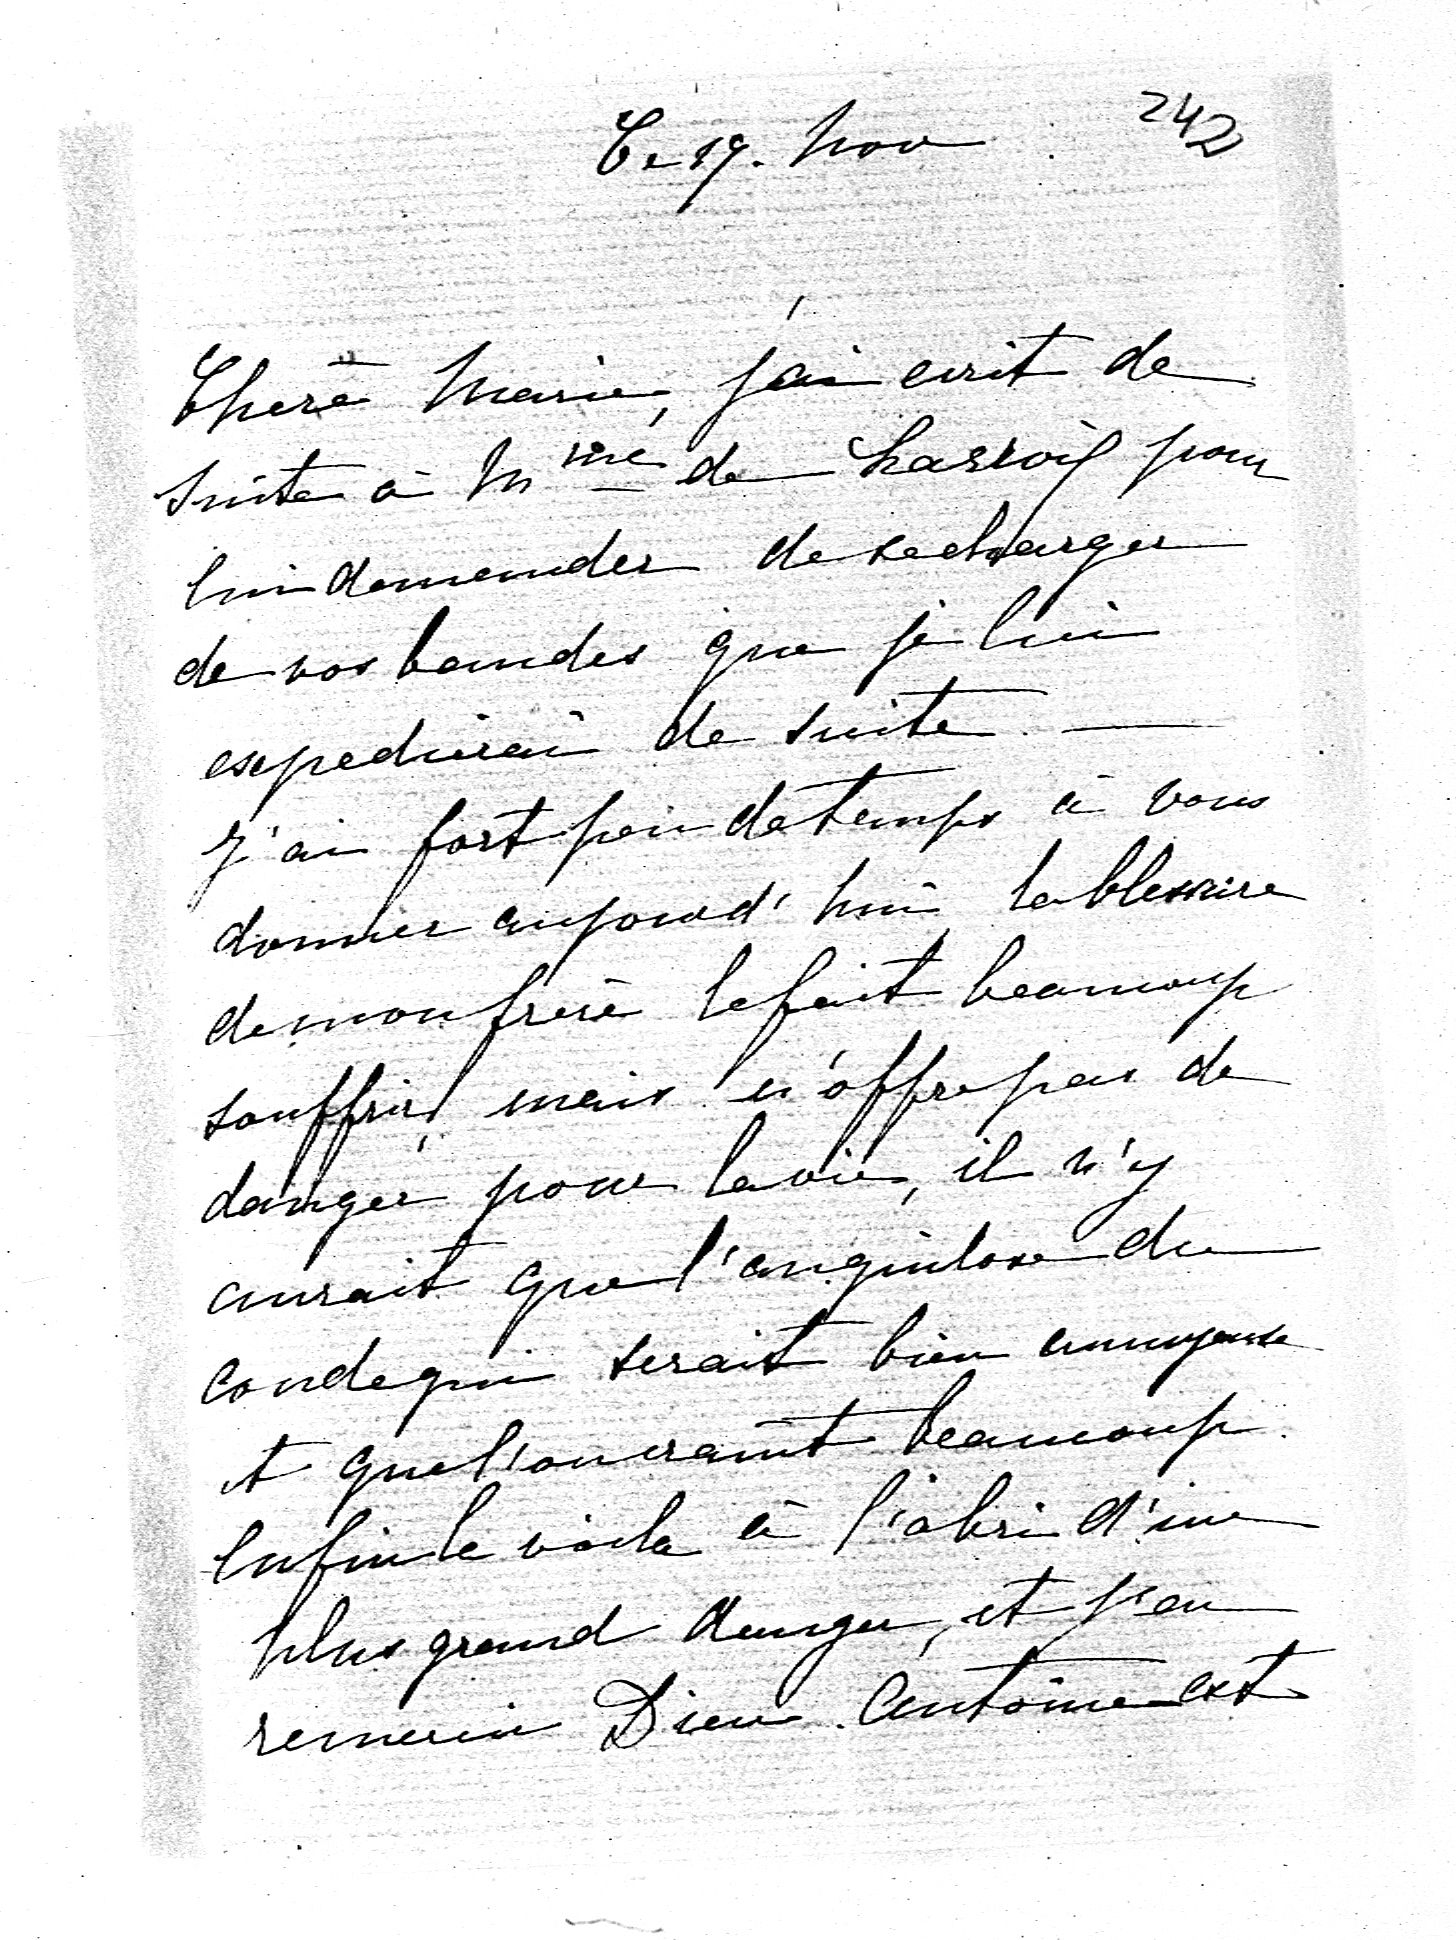 Ce 19. Nov
242
Chère Marie, j'ai ecrit de
suite à Mme de pour
lui demander de se charger
de vos bandes que je lui
expedierai de suite —
J'ai fort peu de temps à vous
donner aujourd'hui, la blessure
de mon frère le fait beaucoup
souffrir, mais n'offre pas de
danger pour la vie, il n'y
aurait que l'anquilose du
coude qui serait bien ennuyeuse
et que l'on craint beaucoup.
Enfin le voila à l'abri d'un
plus grand danger, et j'en
remercie Dieu. Antoine est